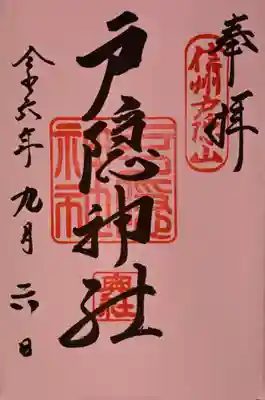 奉拝
信州戸隠山
戸隠神社
戸隠神社
奥社
令和六年九月 日